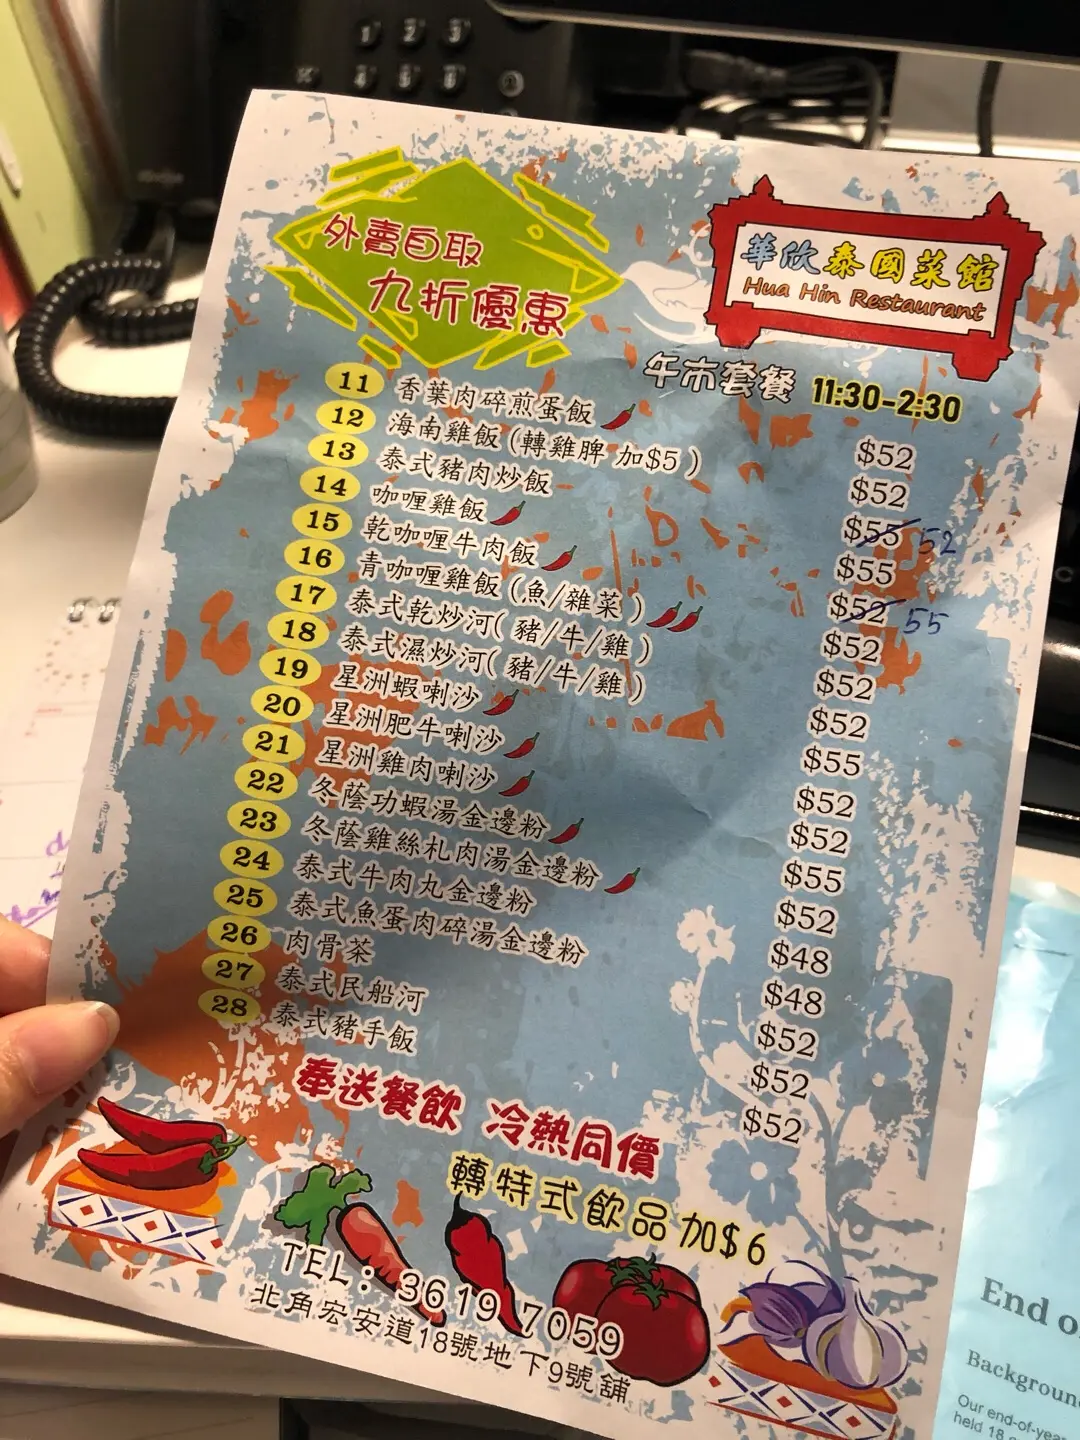 1 2 3
4 5 6
外賣自取
九折優惠
華欣泰國菜館
Hua Hin Restaurant
午市套餐 11:30-2:30
11 香葉肉碎煎蛋飯 $52
12 海南雞飯 (轉雞脾 加$5 ) $52
13 泰式豬肉炒飯 $55 52
14 咖喱雞飯 $55
15 乾咖喱牛肉飯 $52 55
16 青咖喱雞飯 (魚/雜菜 ) $52
17 泰式乾炒河( 豬/牛/雞 ) $52
18 泰式濕炒河( 豬/牛/雞 ) $52
19 星洲蝦喇沙 $55
20 星洲肥牛喇沙 $52
21 星洲雞肉喇沙 $52
22 冬蔭功蝦湯金邊粉 $55
23 冬蔭雞絲札肉湯金邊粉 $52
24 泰式牛肉丸金邊粉 $48
25 泰式魚蛋肉碎湯金邊粉 $48
26 肉骨茶 $52
27 泰式民船河 $52
28 泰式豬手飯 $52
奉送餐飲 冷熱同價
轉特式飲品加$6
TEL: 3619 7059
北角宏安道18號地下9號舖
End o
Background
Our end-of-yea
held 18